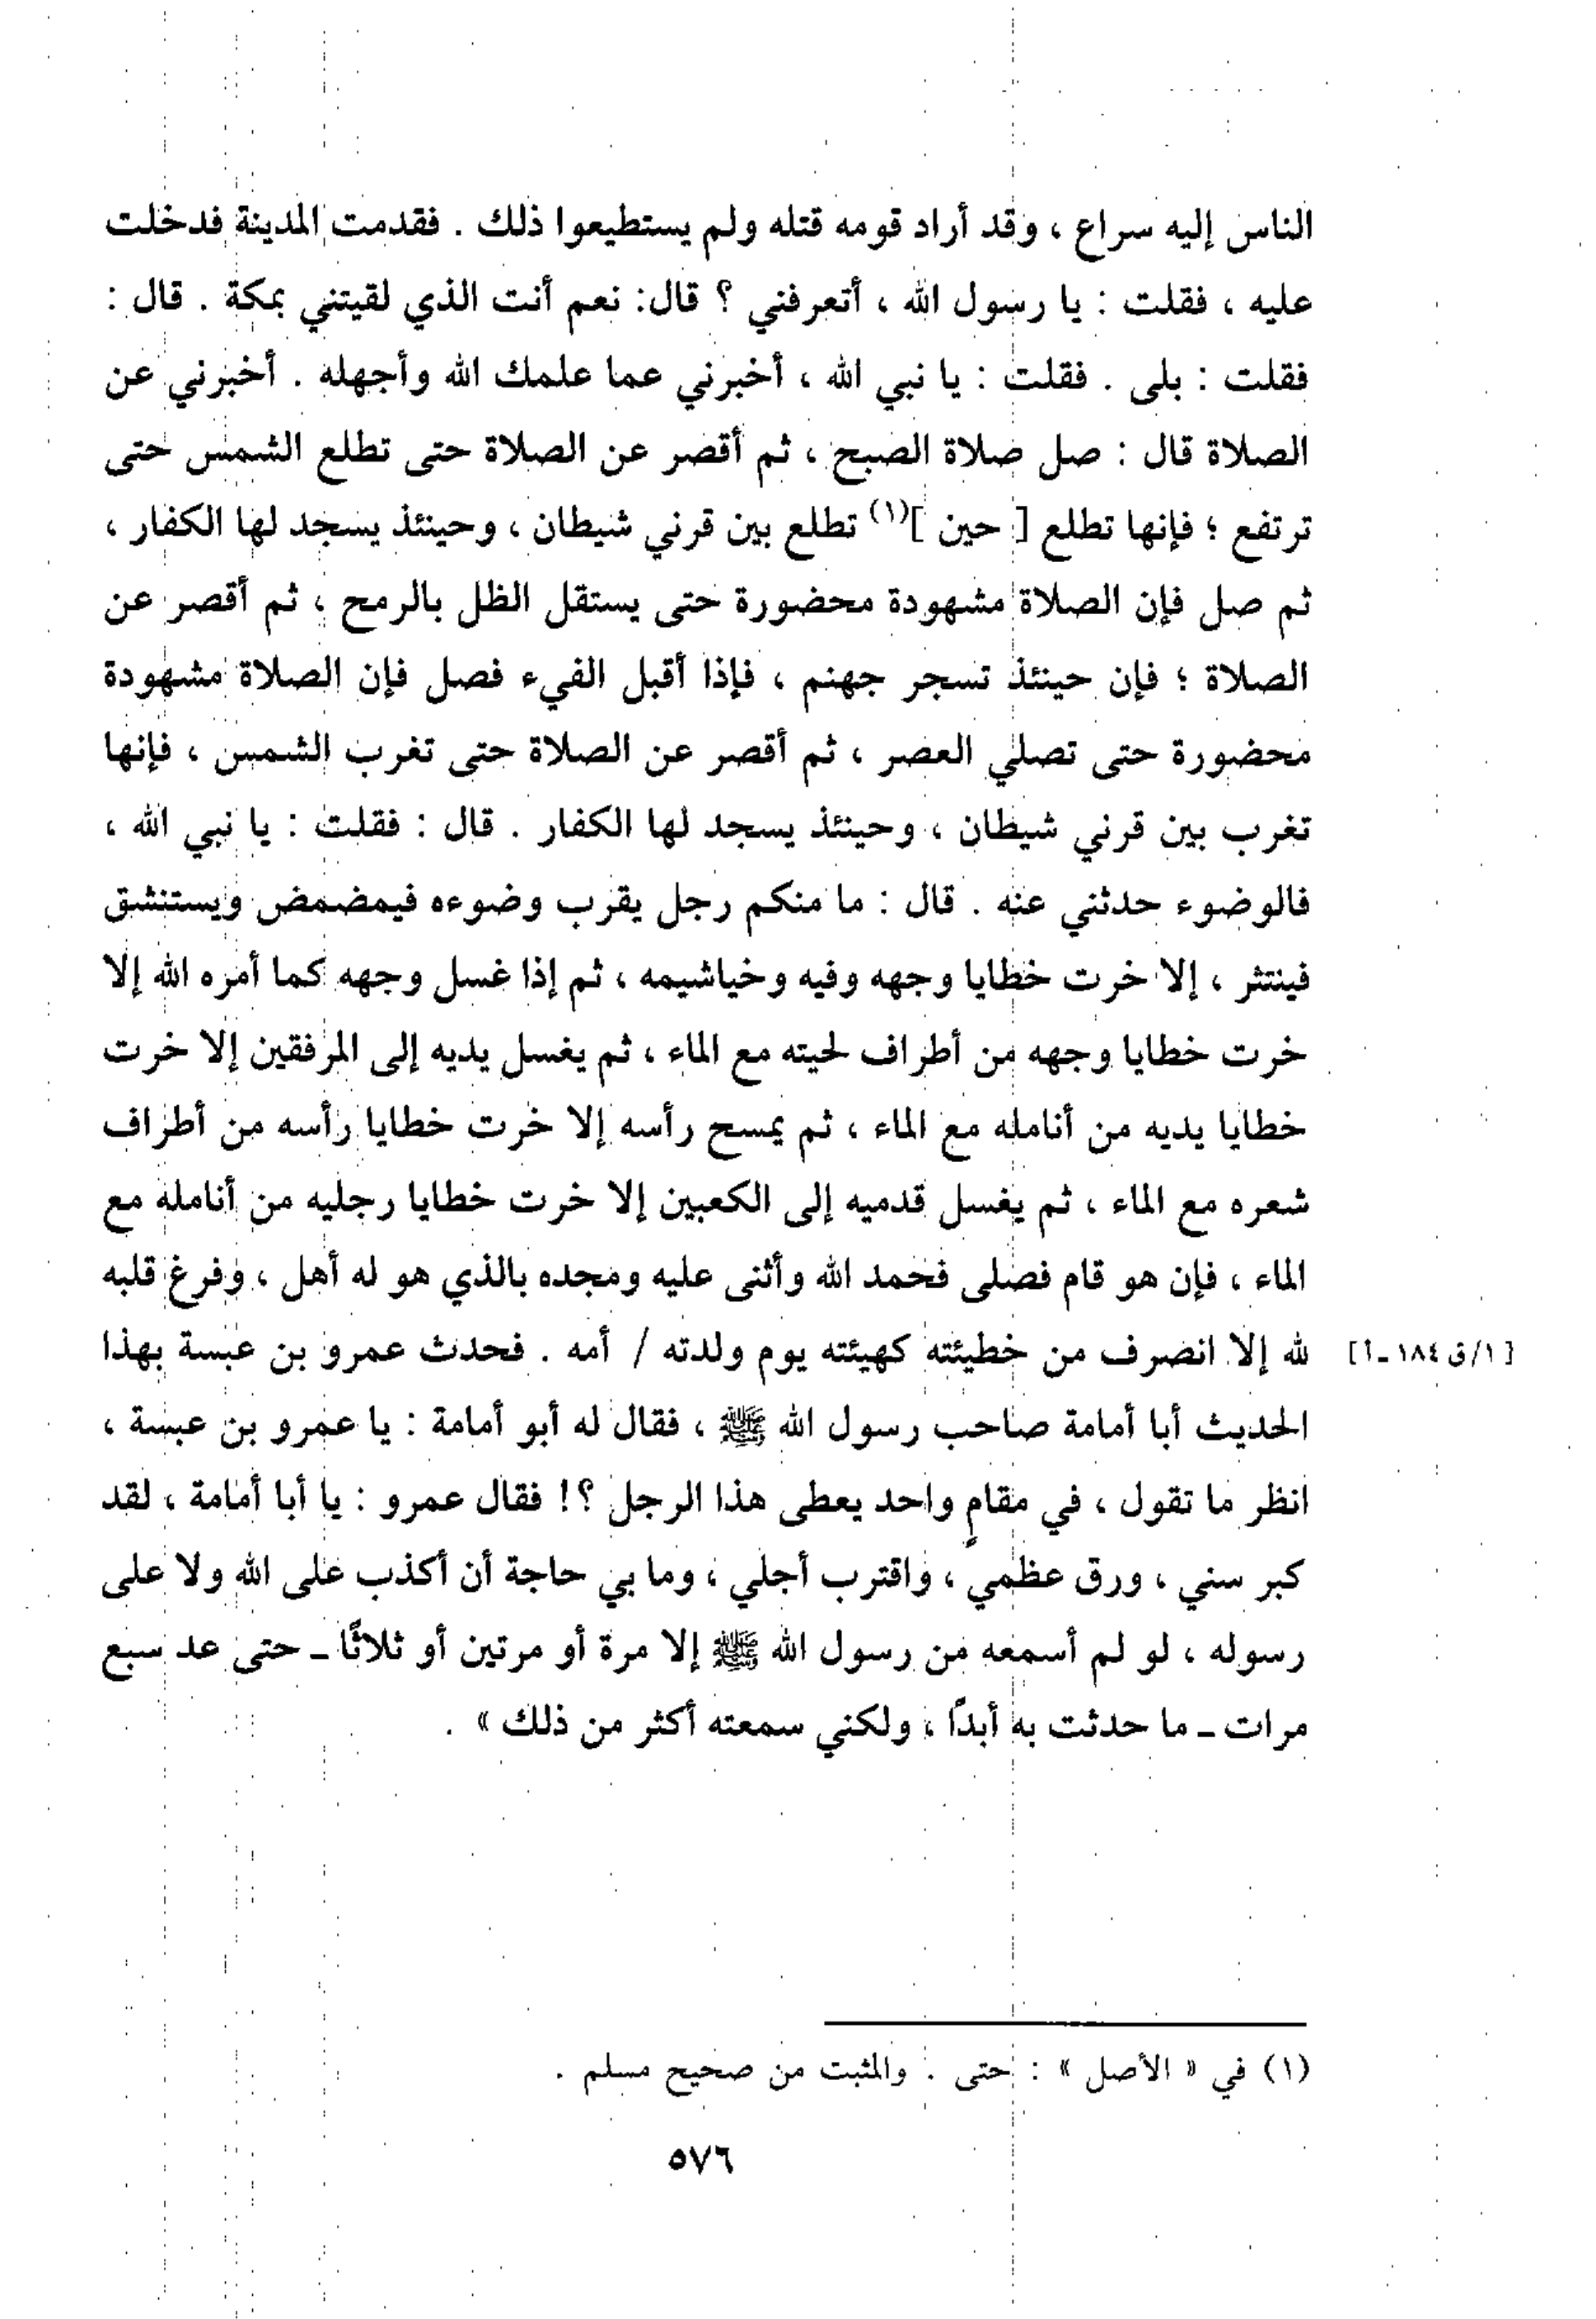 الناس إليه سراع ، وقد أراد قومه قتله ولم يستطيعوا ذلك . فقدمت المدينة فدخلت
عليه ، فقلت : يا رسول الله ، أتعرفني ؟ قال: نعم أنت الذي لقيتني بمكة . قال :
فقلت : بلى . فقلت : يا نبي الله ، أخبرني عما علمك الله وأجهله . أخبرني عن
الصلاة قال : صل صلاة الصبح ، ثم أقصر عن الصلاة حتى تطلع الشمس حتى
ترتفع ؛ فإنها تطلع [ حين ](١) تطلع بين قرني شيطان ، وحينئذ يسجد لها الكفار ،
ثم صل فإن الصلاة مشهودة محضورة حتى يستقل الظل بالرمح ، ثم أقصر عن
الصلاة ؛ فإن حينئذ تسجر جهنم ، فإذا أقبل الفيء فصل فإن الصلاة مشهودة
محضورة حتى تصلي العصر ، ثم أقصر عن الصلاة حتى تغرب الشمس ، فإنها
تغرب بين قرني شيطان ، وحينئذ يسجد لها الكفار . قال : فقلت : يا نبي الله ،
فالوضوء حدثني عنه . قال : ما منكم رجل يقرب وضوءه فيمضمض ويستنشق
فينتثر ، إلا خرت خطايا وجهه وفيه وخياشيمه ، ثم إذا غسل وجهه كما أمره الله إلا
خرت خطايا وجهه من أطراف لحيته مع الماء ، ثم يغسل يديه إلى المرفقين إلا خرت
خطايا يديه من أنامله مع الماء ، ثم يمسح رأسه إلا خرت خطايا رأسه من أطراف
شعره مع الماء ، ثم يغسل قدميه إلى الكعبين إلا خرت خطايا رجليه من أنامله مع
الماء ، فإن هو قام فصلى فحمد الله وأثنى عليه ومجده بالذي هو له أهل ، وفرغ قلبه
لله إلا انصرف من خطيئته كهيئته يوم ولدته / أمه . فحدث عمرو بن عبسة بهذا [١/ق ١٨٤ـ أ]
الحديث أبا أمامة صاحب رسول الله ﷺ ، فقال له أبو أمامة : يا عمرو بن عبسة ،
انظر ما تقول ، في مقامٍ واحد يعطى هذا الرجل ؟! فقال عمرو : يا أبا أمامة ، لقد
كبر سني ، ورق عظمي ، واقترب أجلي ، وما بي حاجة أن أكذب على الله ولا على
رسوله ، لو لم أسمعه من رسول الله ﷺ إلا مرة أو مرتين أو ثلاثًا ـ حتى عد سبع
مرات ـ ما حدثت به أبدًا ، ولكني سمعته أكثر من ذلك » .
(١) في « الأصل » : حتى . والمثبت من صحيح مسلم .
٥٧٦